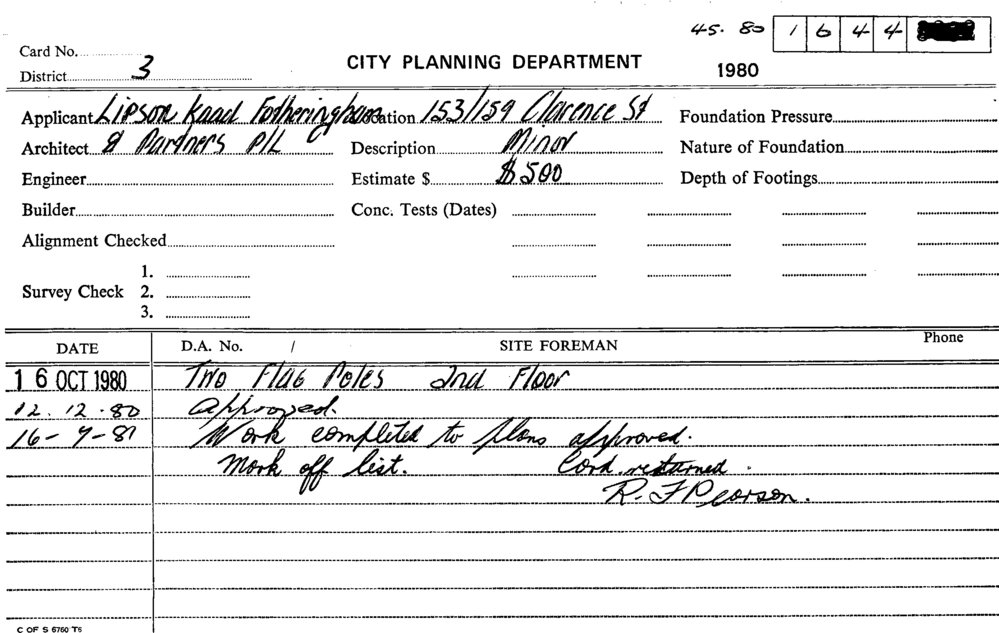 45. 80 1 6 4 4
Card No.
District 3
CITY PLANNING DEPARTMENT
1980
Applicant Lipson Kaad Fotheringham Location 153/159 Clarence St Foundation Pressure
Architect & Partners P/L Description Minor Nature of Foundation
Engineer Estimate $ $500 Depth of Footings
Builder Conc. Tests (Dates)
Alignment Checked
1.
Survey Check 2.
3.
DATE D.A. No. / SITE FOREMAN Phone
16 OCT 1980 Two Flag Poles 2nd Floor
12.12.80 Approved.
16-9-81 Work completed to plans approved.
Mark off list. Card returned.
R. F Pearson.
C OF S 6760 T6